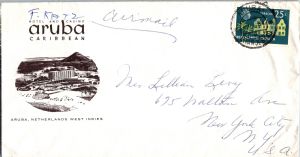 F. Katz
HOTEL AND CASINO
aruba
CARIBBEAN
airmail
25
ARUBA, NETHERLANDS WEST INDIES
Mrs Lillian Levy
675 Walton Ave
New York City
N.Y.
USA